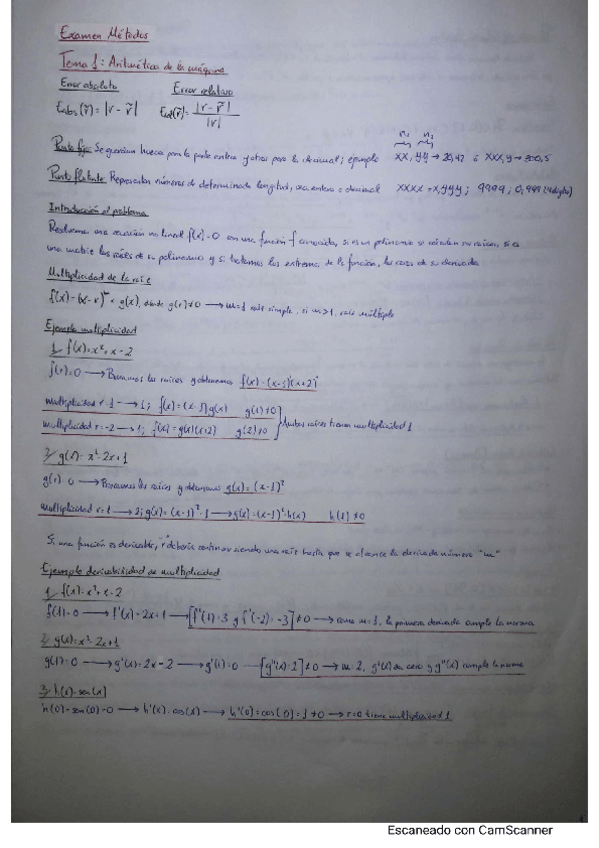 Examen Métodos
Tema 1: Aritmética de la máquina
Error absoluto Error relativo
Eabs(r̃) = |r - r̃| Erel(r̃) = |r - r̃| / |r|
Punto fijo: Se guardan huecos para la parte entera y otros para la decimal; ejemplo xx,yy → 20,42 ó xxx,y → 300,5
Punto flotante: Representan números de determinada longitud, sea entero o decimal xxxx = x,yyy; 9999; 0,999 (4 dígitos)
Introducción al problema
Resolvemos una ecuación no lineal f(x)=0 con una función f conocida, si es un polinomio se calculan sus raíces, si es
una matriz las raíces de su polinomio y si buscamos los extremos de la función, las raíces de su derivada
Multiplicidad de la raíz
f(x)=(x-r)^m · g(x), donde g(r)≠0 → m=1 raíz simple, si m>1, raíz múltiple
Ejemplo multiplicidad
1/ f(x)=x²+x-2
f(r)=0 → Buscamos las raíces y obtenemos f(x)=(x-1)(x+2)
multiplicidad r=1 → 1; f(x)=(x-1)g(x) g(1)≠0
multiplicidad r=-2 → 1; f(x)=g(x)(x+2) g(2)≠0 Ambas raíces tienen multiplicidad 1
2/ g(x)=x²-2x+1
g(r)=0 → Buscamos las raíces y obtenemos g(x)=(x-1)²
multiplicidad r=1 → 2; g(x)=(x-1)²·1 → g(x)=(x-1)²·h(x) h(1)≠0
Si una función es derivable, r debería continuar siendo una raíz hasta que se alcance la derivada número "m"
Ejemplo derivabilidad de multiplicidad
1/ f(x)=x²+x-2
f(1)=0 → f'(x)=2x+1 → [f'(1)=3 y f'(-2)=-3] ≠0 → como m=1, la primera derivada cumple la norma
2/ g(x)=x²-2x+1
g(1)=0 → g'(x)=2x-2 → g'(1)=0 → [g''(x)=2] ≠0 → m=2, g'(x) da cero y g''(x) cumple la norma
3/ h(x)=sen(x)
h(0)=sen(0)=0 → h'(x)=cos(x) → h'(0)=cos(0)=1≠0 → r=0 tiene multiplicidad 1
Escaneado con CamScanner